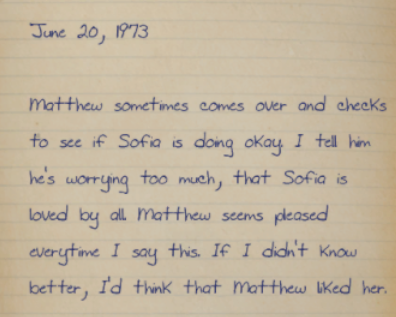 June 20, 1973
Matthew sometimes comes over and checks
to see if Sofia is doing okay. I tell him
he's worrying too much, that Sofia is
loved by all. Matthew seems pleased
everytime I say this. If I didn't know
better, I'd think that Matthew liked her.